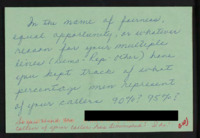 In the name of fairness,
equal opportunity, or whatever
reason for your multiple
lines (Dems - Rep Other) have
you kept track of what
percentage now represent
of your callers 90%? 95%?
callers of your callers are Democrats?